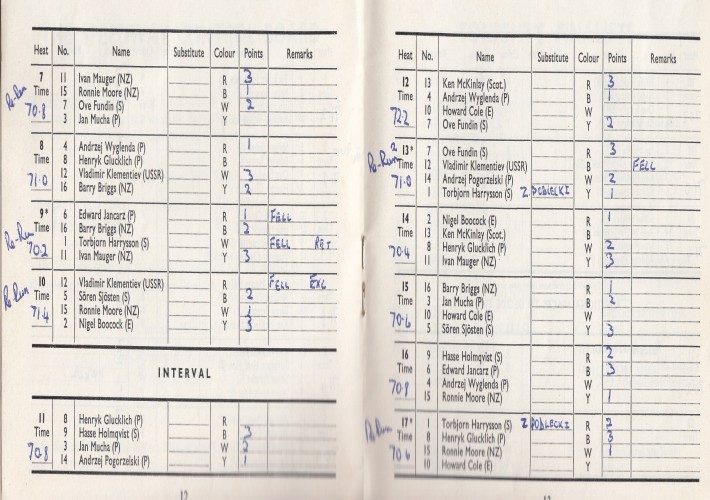 Heat No. Name Substitute Colour Points Remarks
7 11 Ivan Mauger (NZ) R 3
Re-Run Time 15 Ronnie Moore (NZ) B 1
70.8 7 Ove Fundin (S) W 2
3 Jan Mucha (P) Y
8 4 Andrzej Wyglenda (P) R 1
Time 8 Henryk Glucklich (P) B
71.0 12 Vladimir Klementiev (USSR) W 3
16 Barry Briggs (NZ) Y 2
9* 6 Edward Jancarz (P) R 1 FELL
Re-Run Time 16 Barry Briggs (NZ) B 2
70.2 1 Torbjorn Harrysson (S) W FELL RET
11 Ivan Mauger (NZ) Y 3
10 12 Vladimir Klementiev (USSR) R FELL EXC
Re Run Time 5 Sören Sjösten (S) B 2
71.4 15 Ronnie Moore (NZ) W 1
2 Nigel Boocock (E) Y 3
INTERVAL
11 8 Henryk Glucklich (P) R
Time 9 Hasse Holmqvist (S) B 3
70.8 3 Jan Mucha (P) W 2
14 Andrzej Pogorzelski (P) Y 1
Heat No. Name Substitute Colour Points Remarks
12 13 Ken McKinlay (Scot.) R 3
Time 4 Andrzej Wyglenda (P) B 1
72.2 10 Howard Cole (E) W
7 Ove Fundin (S) Y 2
2 13* 7 Ove Fundin (S) R 3
Re-Run Time 12 Vladimir Klementiev (USSR) B FELL
71.0 14 Andrzej Pogorzelski (P) W 2
1 Torbjorn Harrysson (S) Z PODLECKI Y 1
14 2 Nigel Boocock (E) R 1
Time 13 Ken McKinlay (Scot.) B
70.4 8 Henryk Glucklich (P) W 2
11 Ivan Mauger (NZ) Y 3
15 16 Barry Briggs (NZ) R 1
Time 3 Jan Mucha (P) B 2
70.6 10 Howard Cole (E) W
5 Sören Sjösten (S) Y 3
16 9 Hasse Holmqvist (S) R 2
Time 6 Edward Jancarz (P) B 3
70.8 4 Andrzej Wyglenda (P) W
15 Ronnie Moore (NZ) Y 1
17* 1 Torbjorn Harrysson (S) Z PODLECKI R 2
Re Run Time 8 Henryk Glucklich (P) B 3
70.6 15 Ronnie Moore (NZ) W 1
10 Howard Cole (E) Y